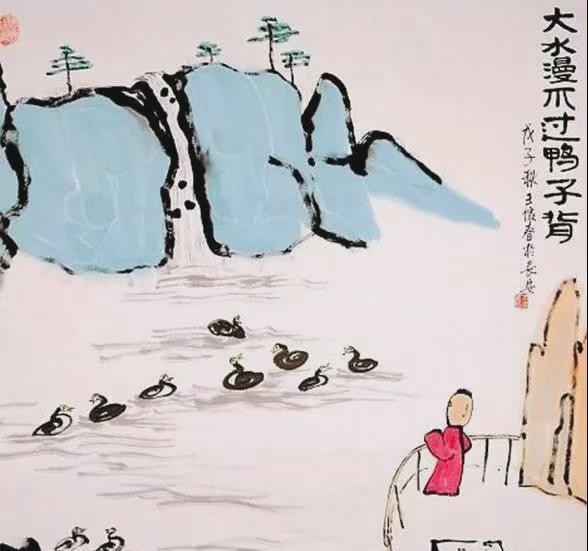 大水漫不过鸭子背
戊子秋王於长安